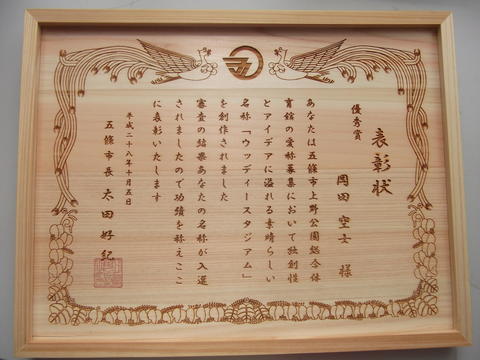 表彰状
優秀賞
岡田 空士 様
あなたは五條市上野公園総合体
育館の愛称募集において独創性
とアイデアに溢れる素晴らしい
名称「ウッディースタジアム」
を創作されました
審査の結果あなたの名称が入選
されましたので功績を称えここ
に表彰いたします
平成二十八年十月五日
五條市長 太田 好紀